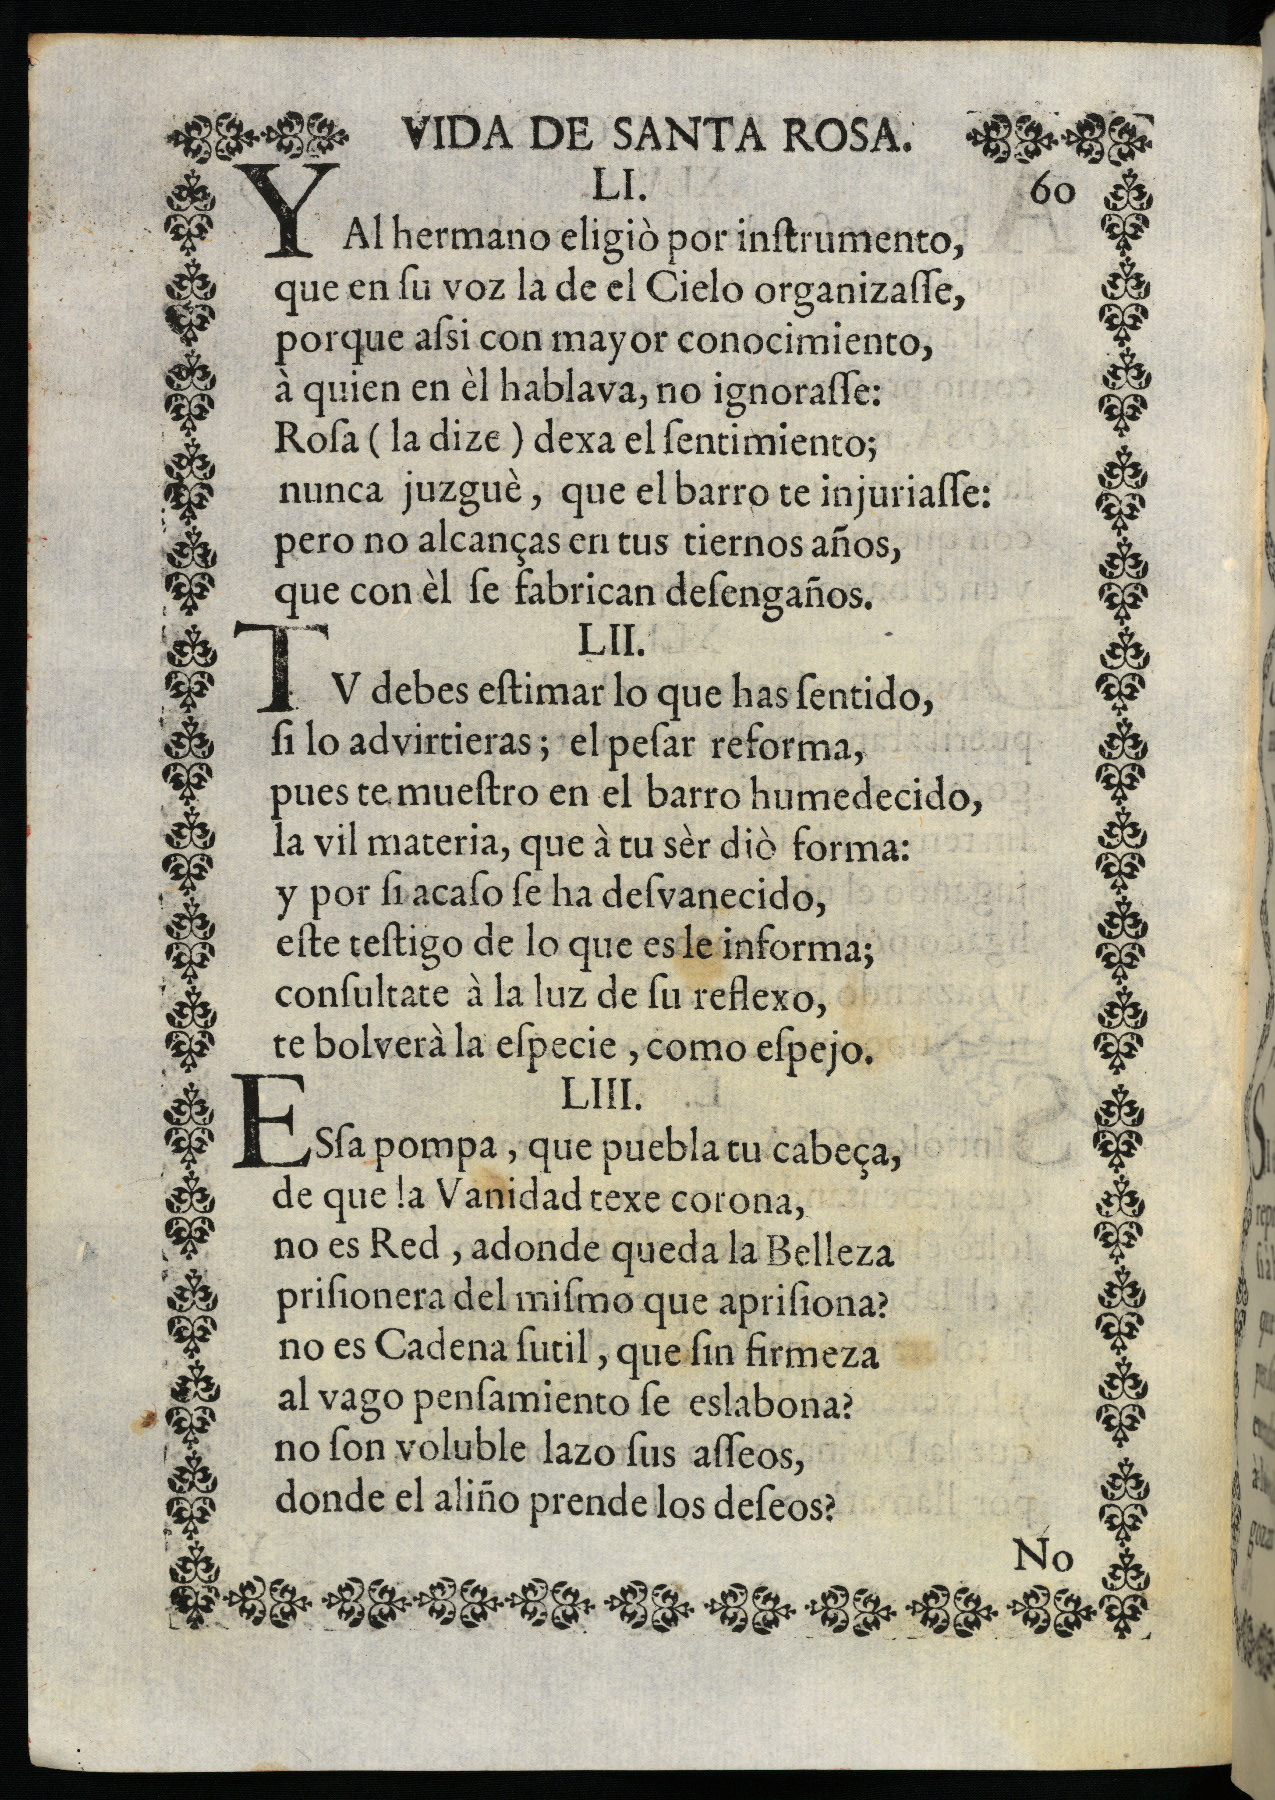 VIDA DE SANTA ROSA.
LI.
60
Y Al hermano eligiò por inſtrumento,
que en ſu voz la de el Cielo organizaſſe,
porque aſsi con mayor conocimiento,
à quien en èl hablava, no ignoraſſe:
Roſa ( la dize ) dexa el ſentimiento;
nunca juzguè, que el barro te injuriaſſe:
pero no alcanças en tus tiernos años,
que con èl ſe fabrican deſengaños.
LII.
TV debes eſtimar lo que has ſentido,
ſi lo advirtieras; el peſar reforma,
pues te mueſtro en el barro humedecido,
la vil materia, que à tu sèr diò forma:
y por ſi acaſo ſe ha deſvanecido,
eſte teſtigo de lo que es le informa;
conſultate à la luz de ſu reflexo,
te bolverà la eſpecie, como eſpejo.
LIII.
ESſa pompa, que puebla tu cabeça,
de que la Vanidad texe corona,
no es Red, adonde queda la Belleza
priſionera del miſmo que apriſiona?
no es Cadena ſutil, que ſin firmeza
al vago penſamiento ſe eslabona?
no ſon voluble lazo ſus aſſeos,
donde el aliño prende los deſeos?
No